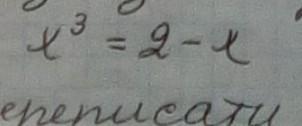 x³ = 2 - x
ереписати